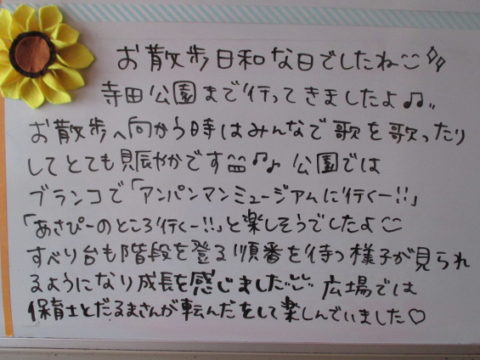 お散歩日和な日でしたね
寺田公園まで行ってきましたよ♫
お散歩へ向かう時はみんなで歌を歌ったり
してとても賑やかです♫♪ 公園では
ブランコで「アンパンマンミュージアムに行くー!!」
「あさぴーのところ行くー!!」と楽しそうでしたよ
すべり台も階段を登る順番を待つ様子が見られ
るようになり成長を感じました 広場では
保育士とだるまさんが転んだをして楽しんでいました♡